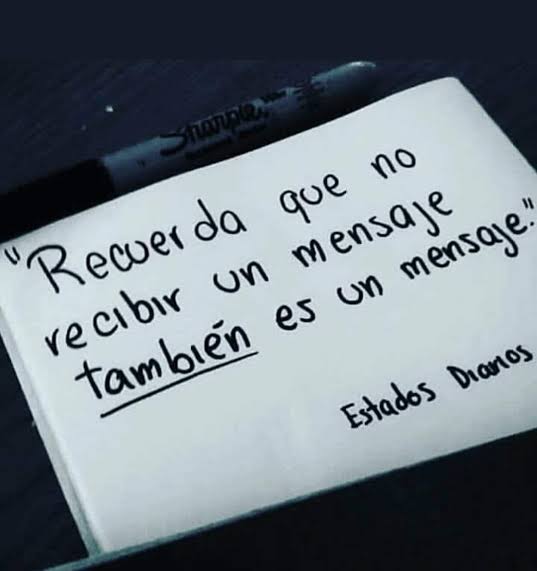 Sharpie
"Recuerda que no
recibir un mensaje
también es un mensaje."
Estados Diarios